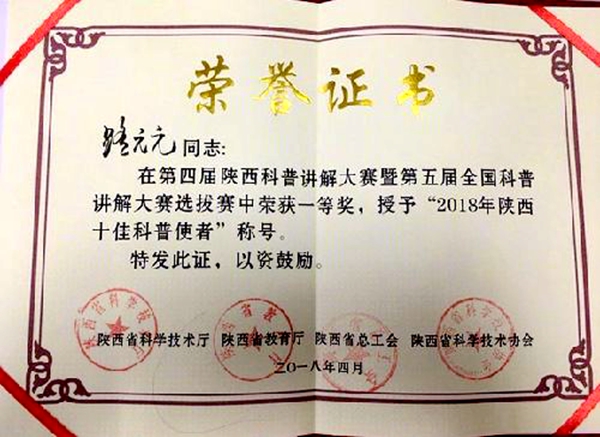 荣誉证书
路元元同志:
在第四届陕西科普讲解大赛暨第五届全国科普
讲解大赛选拔赛中荣获一等奖，授予“2018年陕西
十佳科普使者”称号。
特发此证，以资鼓励。
陕西省科学技术厅 陕西省教育厅 陕西省总工会 陕西省科学技术协会
二〇一八年四月